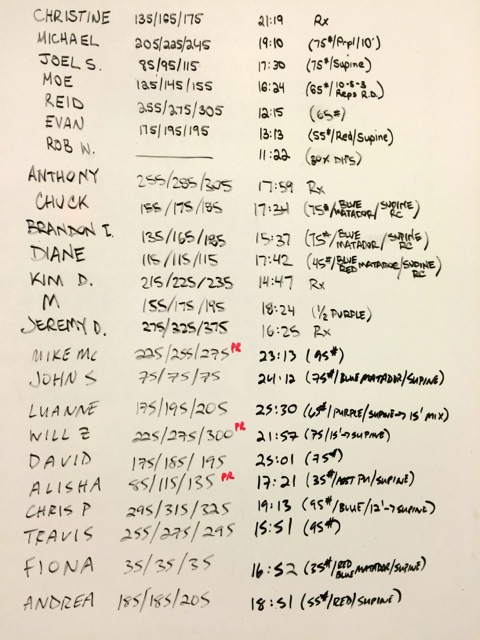 CHRISTINE 135/165/175 21:19 Rx
MICHAEL 205/225/245 19:10 (75#/Prpl/10')
JOEL S. 85/95/115 17:30 (75#/Supine)
MOE 125/145/155 16:24 (65#/10-5-3 Reps R.D.)
REID 255/275/305 12:15 (65#)
EVAN 175/195/195 13:13 (55#/Red/Supine)
ROB W. 11:22 (30X DIPS)
ANTHONY 255/285/305 17:59 Rx
CHUCK 155/175/185 17:34 (75#/BLUE MATADOR/SUPINE RC)
BRANDON I. 135/165/185 15:37 (75#/BLUE MATADOR/SUPINE RC)
DIANE 115/115/115 17:42 (45#/BLUE RED MATADOR/SUPINE RC)
KIM D. 215/225/235 14:47 Rx
M 155/175/195 18:24 (1/2 PURPLE)
JEREMY D. 275/325/375 16:25 Rx
MIKE MC 225/255/275 PR 23:13 (95#)
JOHN S 75/75/75 24:12 (75#/BLUE MATADOR/SUPINE)
LUANNE 175/195/205 25:30 (65#/PURPLE/SUPINE→15' MIX)
WILL Z 225/275/300 PR 21:57 (75/15'→SUPINE)
DAVID 175/185/195 25:01 (75#)
ALISHA 85/115/135 PR 17:21 (35#/ASST PU/SUPINE)
CHRIS P 295/315/325 19:13 (95#/BLUE/12'→SUPINE)
TRAVIS 255/275/295 15:51 (95#)
FIONA 35/35/35 16:52 (35#/RED BLUE MATADOR/SUPINE)
ANDREA 185/185/205 18:51 (55#/RED/SUPINE)